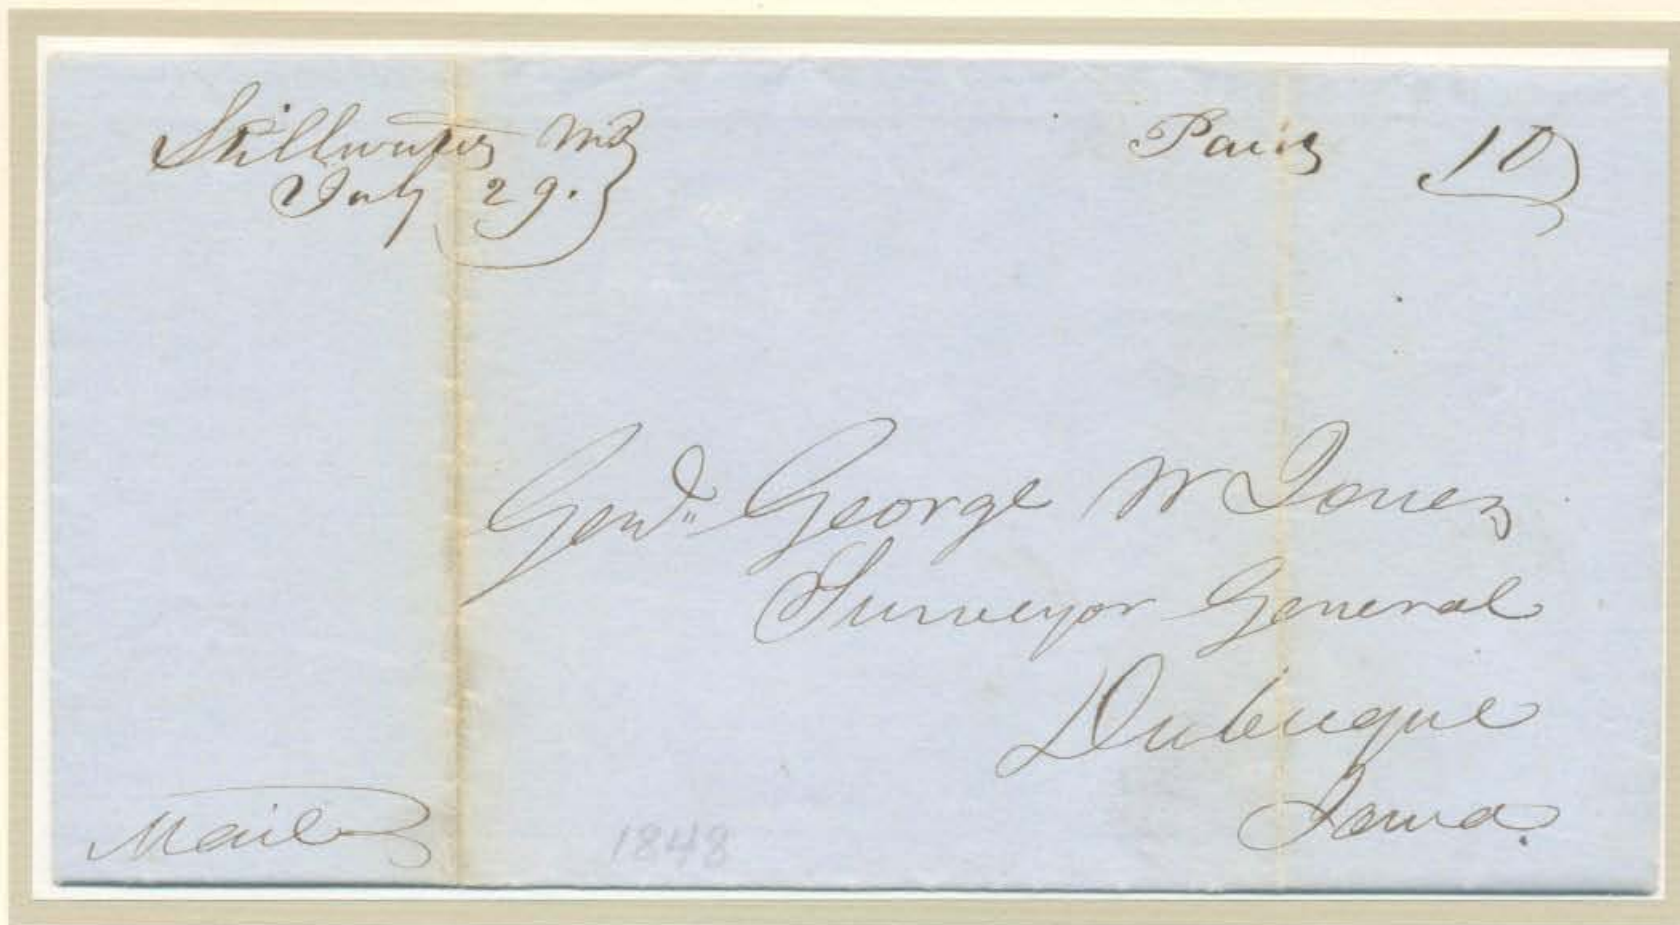 Stillwater M.T.
July 29.
Paid 10
Genl. George W Jones
Surveyor General
Dubuque
Iowa.
Mail
1848